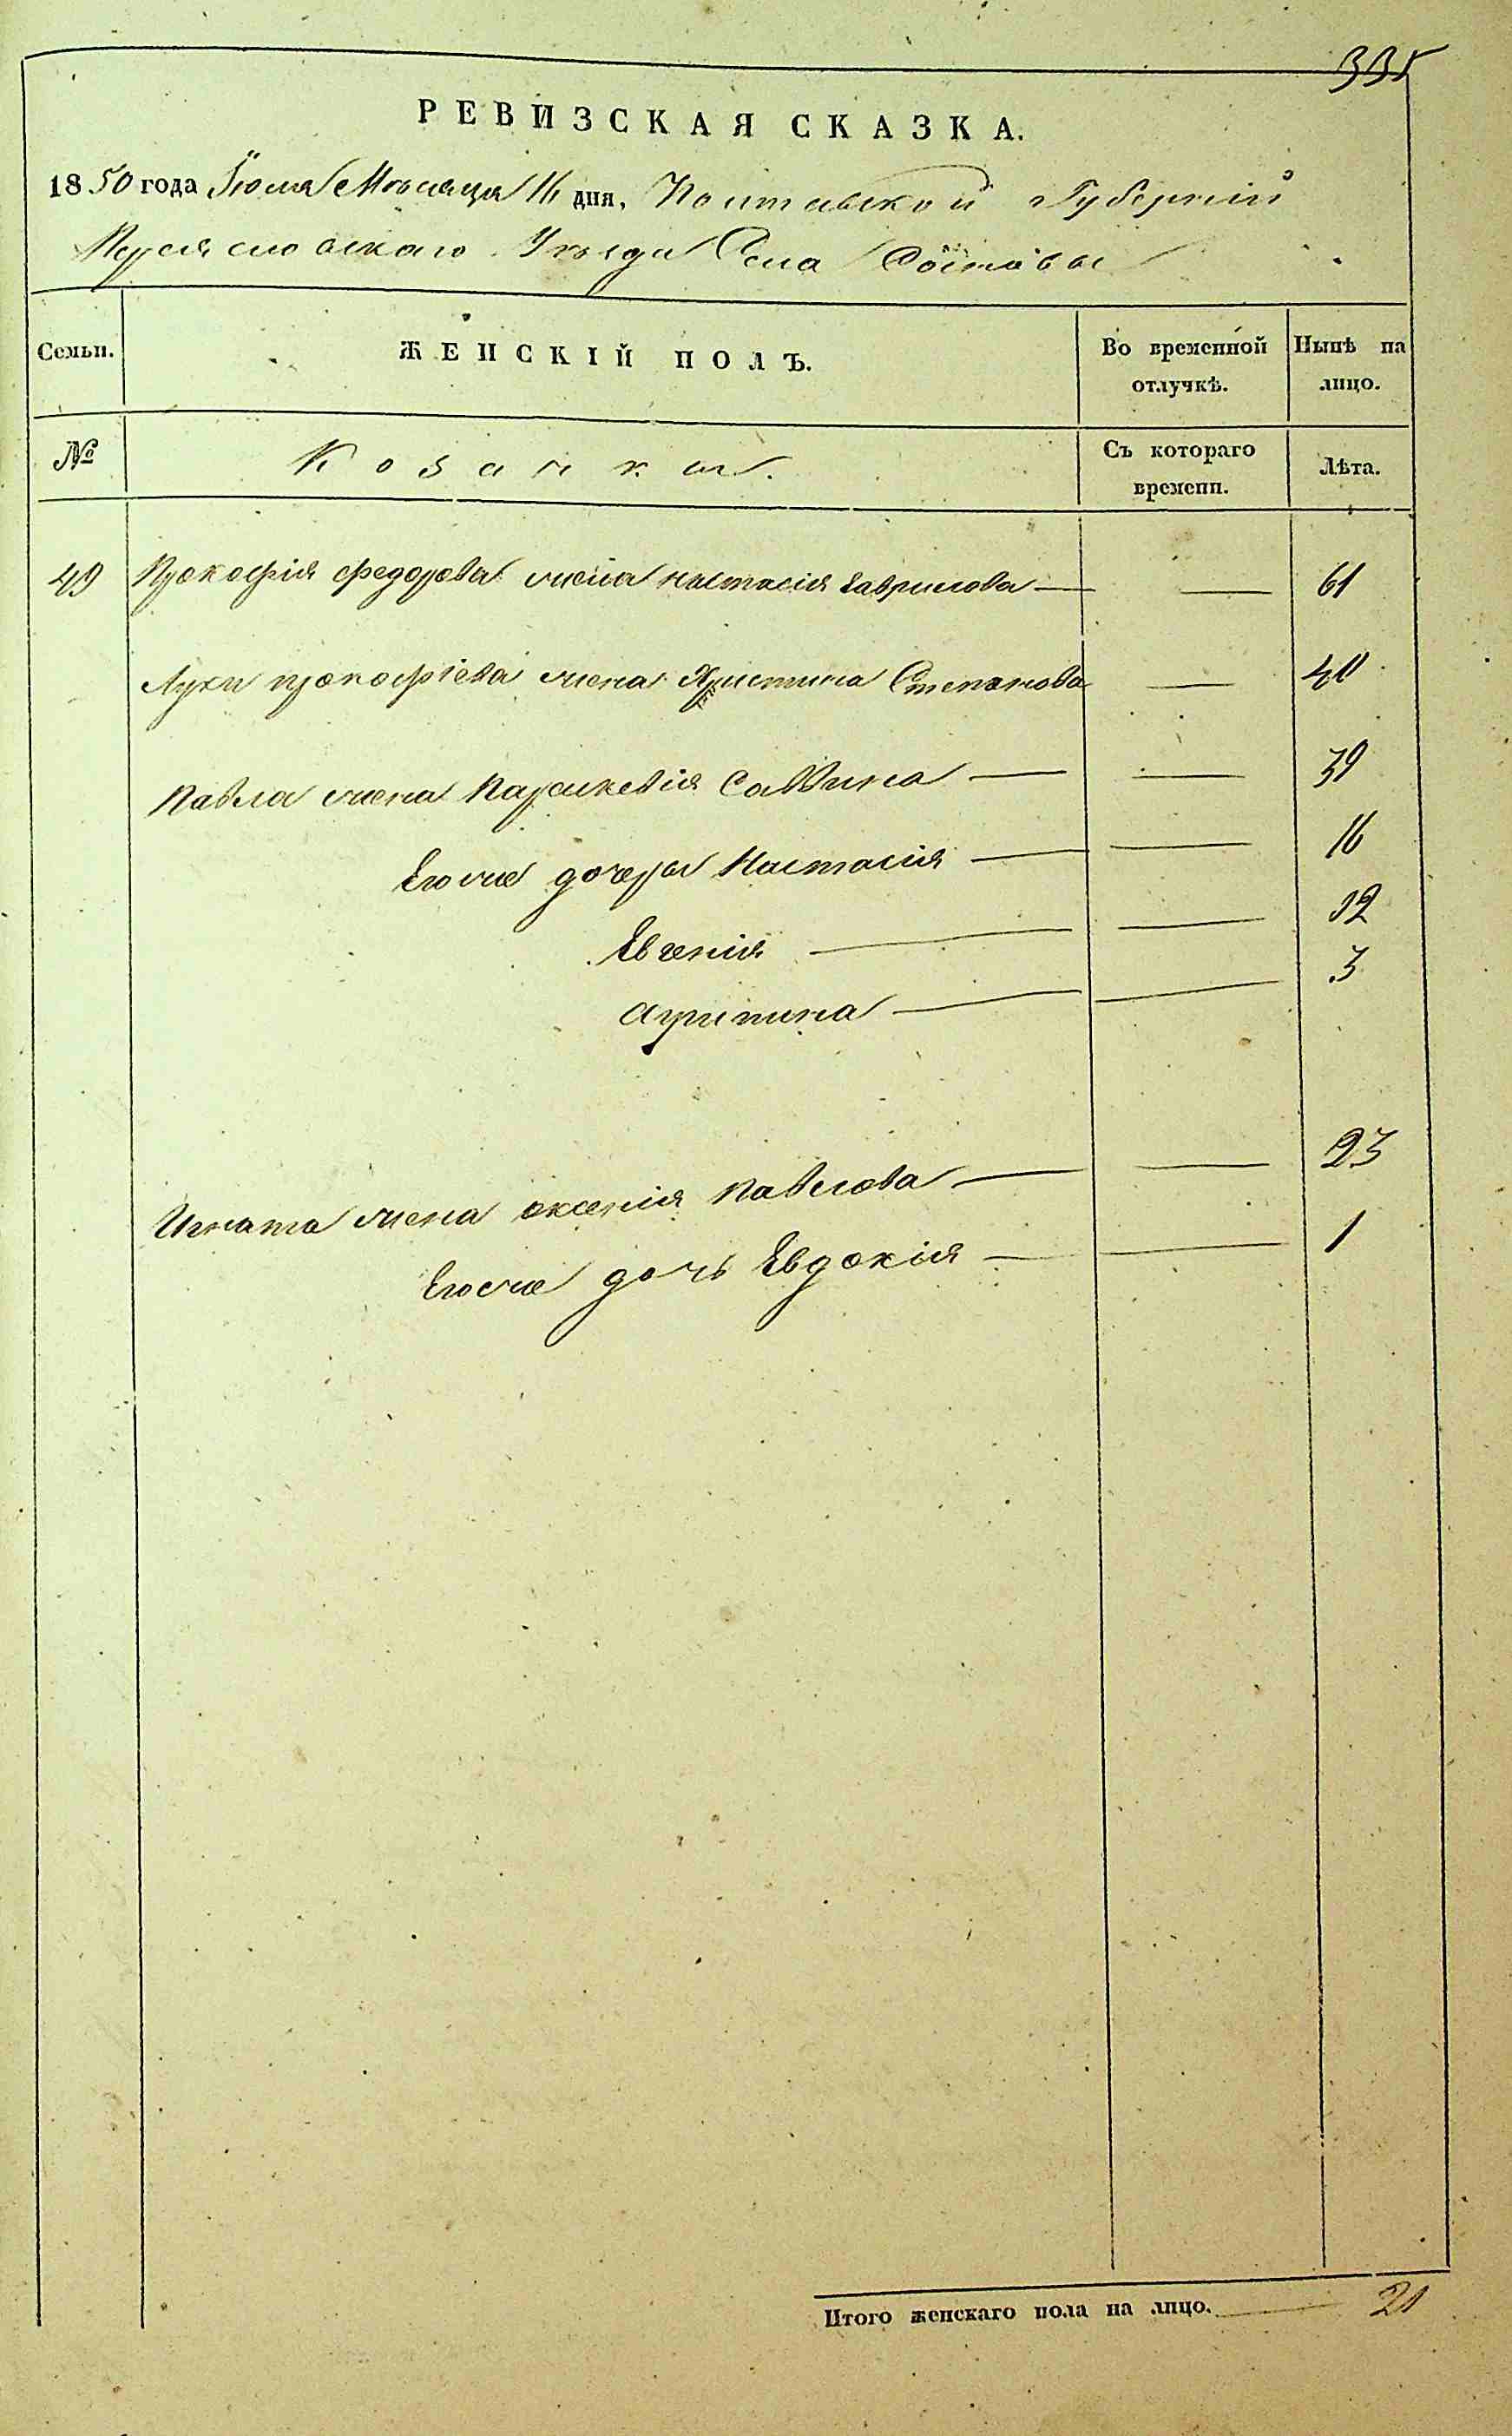 335
РЕВИЗСКАЯ СКАЗКА.
1850 года Іюля Мѣсяца 16 дня, Полтавской Губерніи
Переяславскаго Уѣзда Села
Семьи. ЖЕНСКІЙ ПОЛЪ. Во временной отлучкѣ. Нынѣ на лицо.
№ Козачки. Съ котораго времени. Лѣта.
49 Прокофія Федорова жена Настасія Гаврилова — — 61
Луки Прокофіева жена Христина Степанова — 40
Павла жена Параскевія Саввина — — 39
Его же дочери Настасія — — 16
Евгенія — — 12
Агрипина — — 3
Игната жена Оксенія Павлова — — 23
Его же дочь Евдокія — — 1
Итого женскаго пола на лицо. — 21